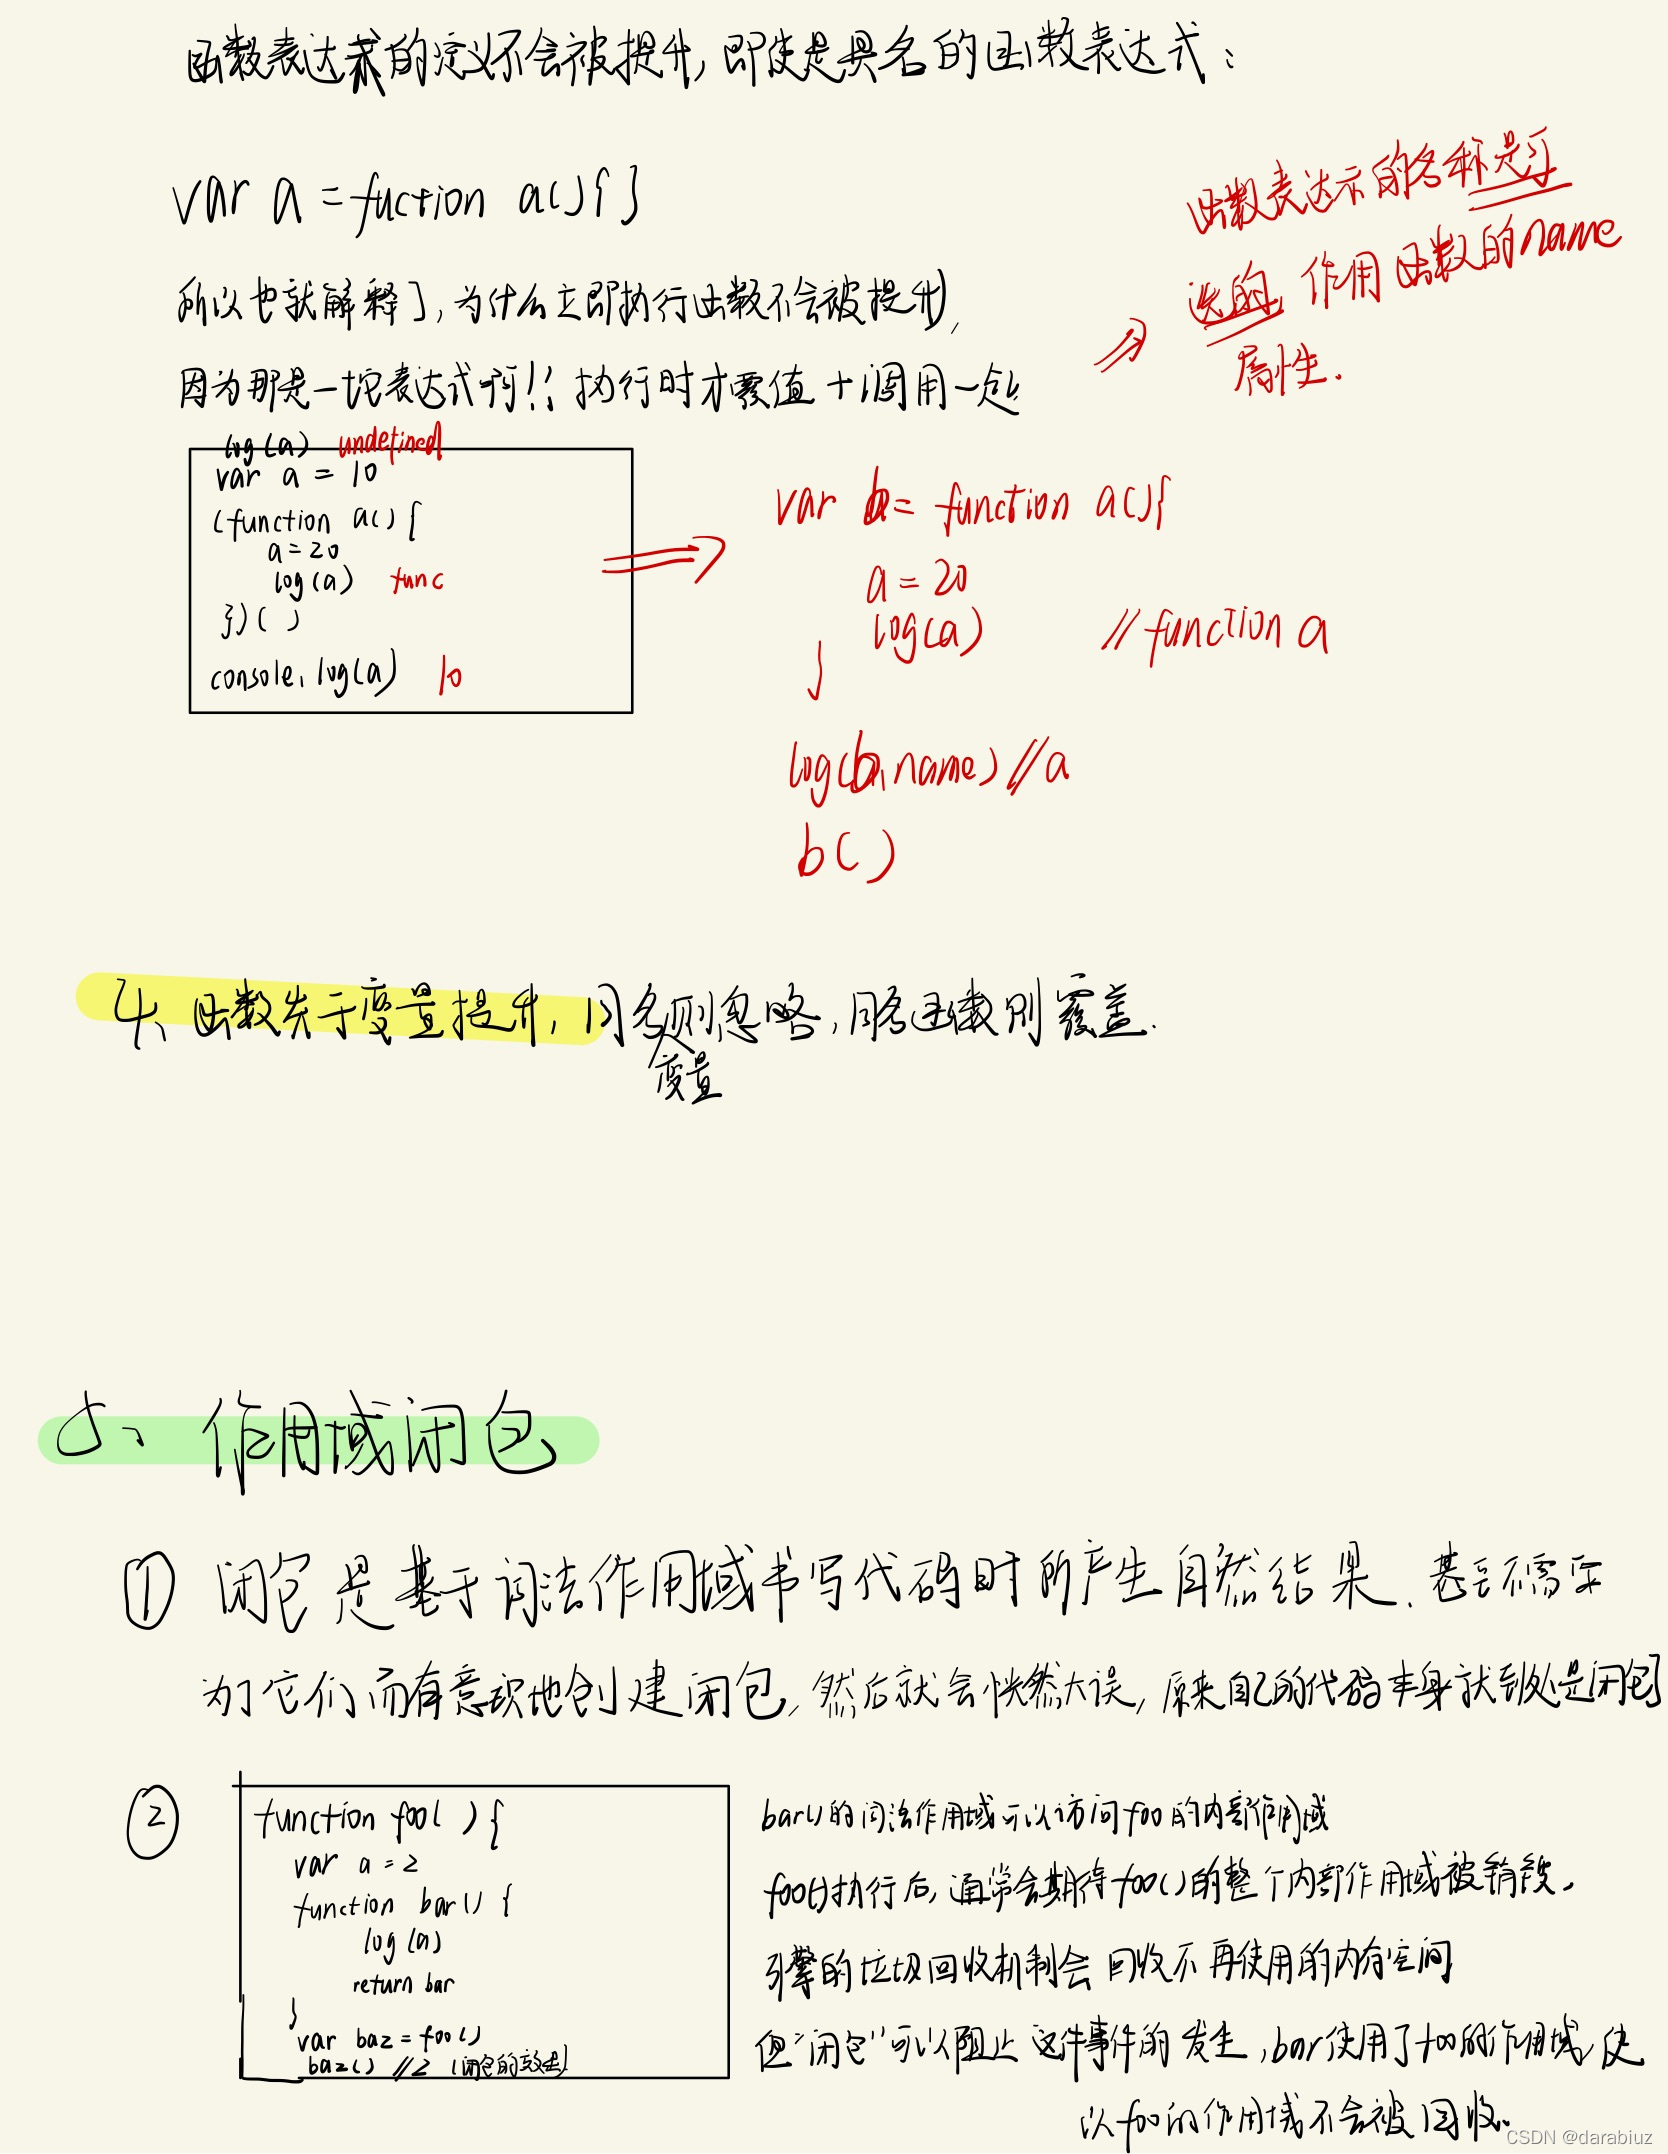 函数表达式的定义不会被提升，即使是具名的函数表达式：
var a = fuction a(){ }
所以也就解释了，为什么立即执行函数不会被提升，
因为那是一坨表达式啊！！执行时才要值＋调用一起
函数表达示的名称是可
选的，作用函数的name
属性.
log(a) undefined
var a = 10
(function a(){
a=20
log(a) func
})( )
console.log(a) 10
var b= function a(){
a = 20
log(a) //function a
}
log(b.name) //a
b( )
4、函数先于变量提升，同名则忽略，同名函数则覆盖.
变量
5、作用域闭包
① 闭包是基于词法作用域书写代码时所产生自然结果、甚至不需要
为了它们而有意识地创建闭包，然后就会恍然大误，原来自己的代码本身就到处是闭包
② function foo( ) {
var a = 2
function bar() {
log(a)
return bar
}
var baz = foo()
baz() //2 (闭包的效果)
bar()的词法作用域可以访问foo的内部作用域
foo()执行后，通常会期待foo()的整个内部作用域被销毁。
引擎的垃圾回收机制会回收不再使用的内存空间
但"闭包"可以阻止这件事件的发生，bar使用了foo的作用域，使
以foo的作用域不会被回收。
CSDN @darabiuz